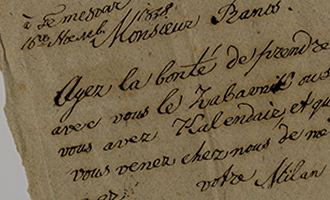 à Se messar
16ro Novemb. 1838.
Monsoeur Pranos.
Ayez la bonté de prendre
avec vous le Zabavnik que
vous avez Kalendair et qu
vous venez chez nous de
votre Milan